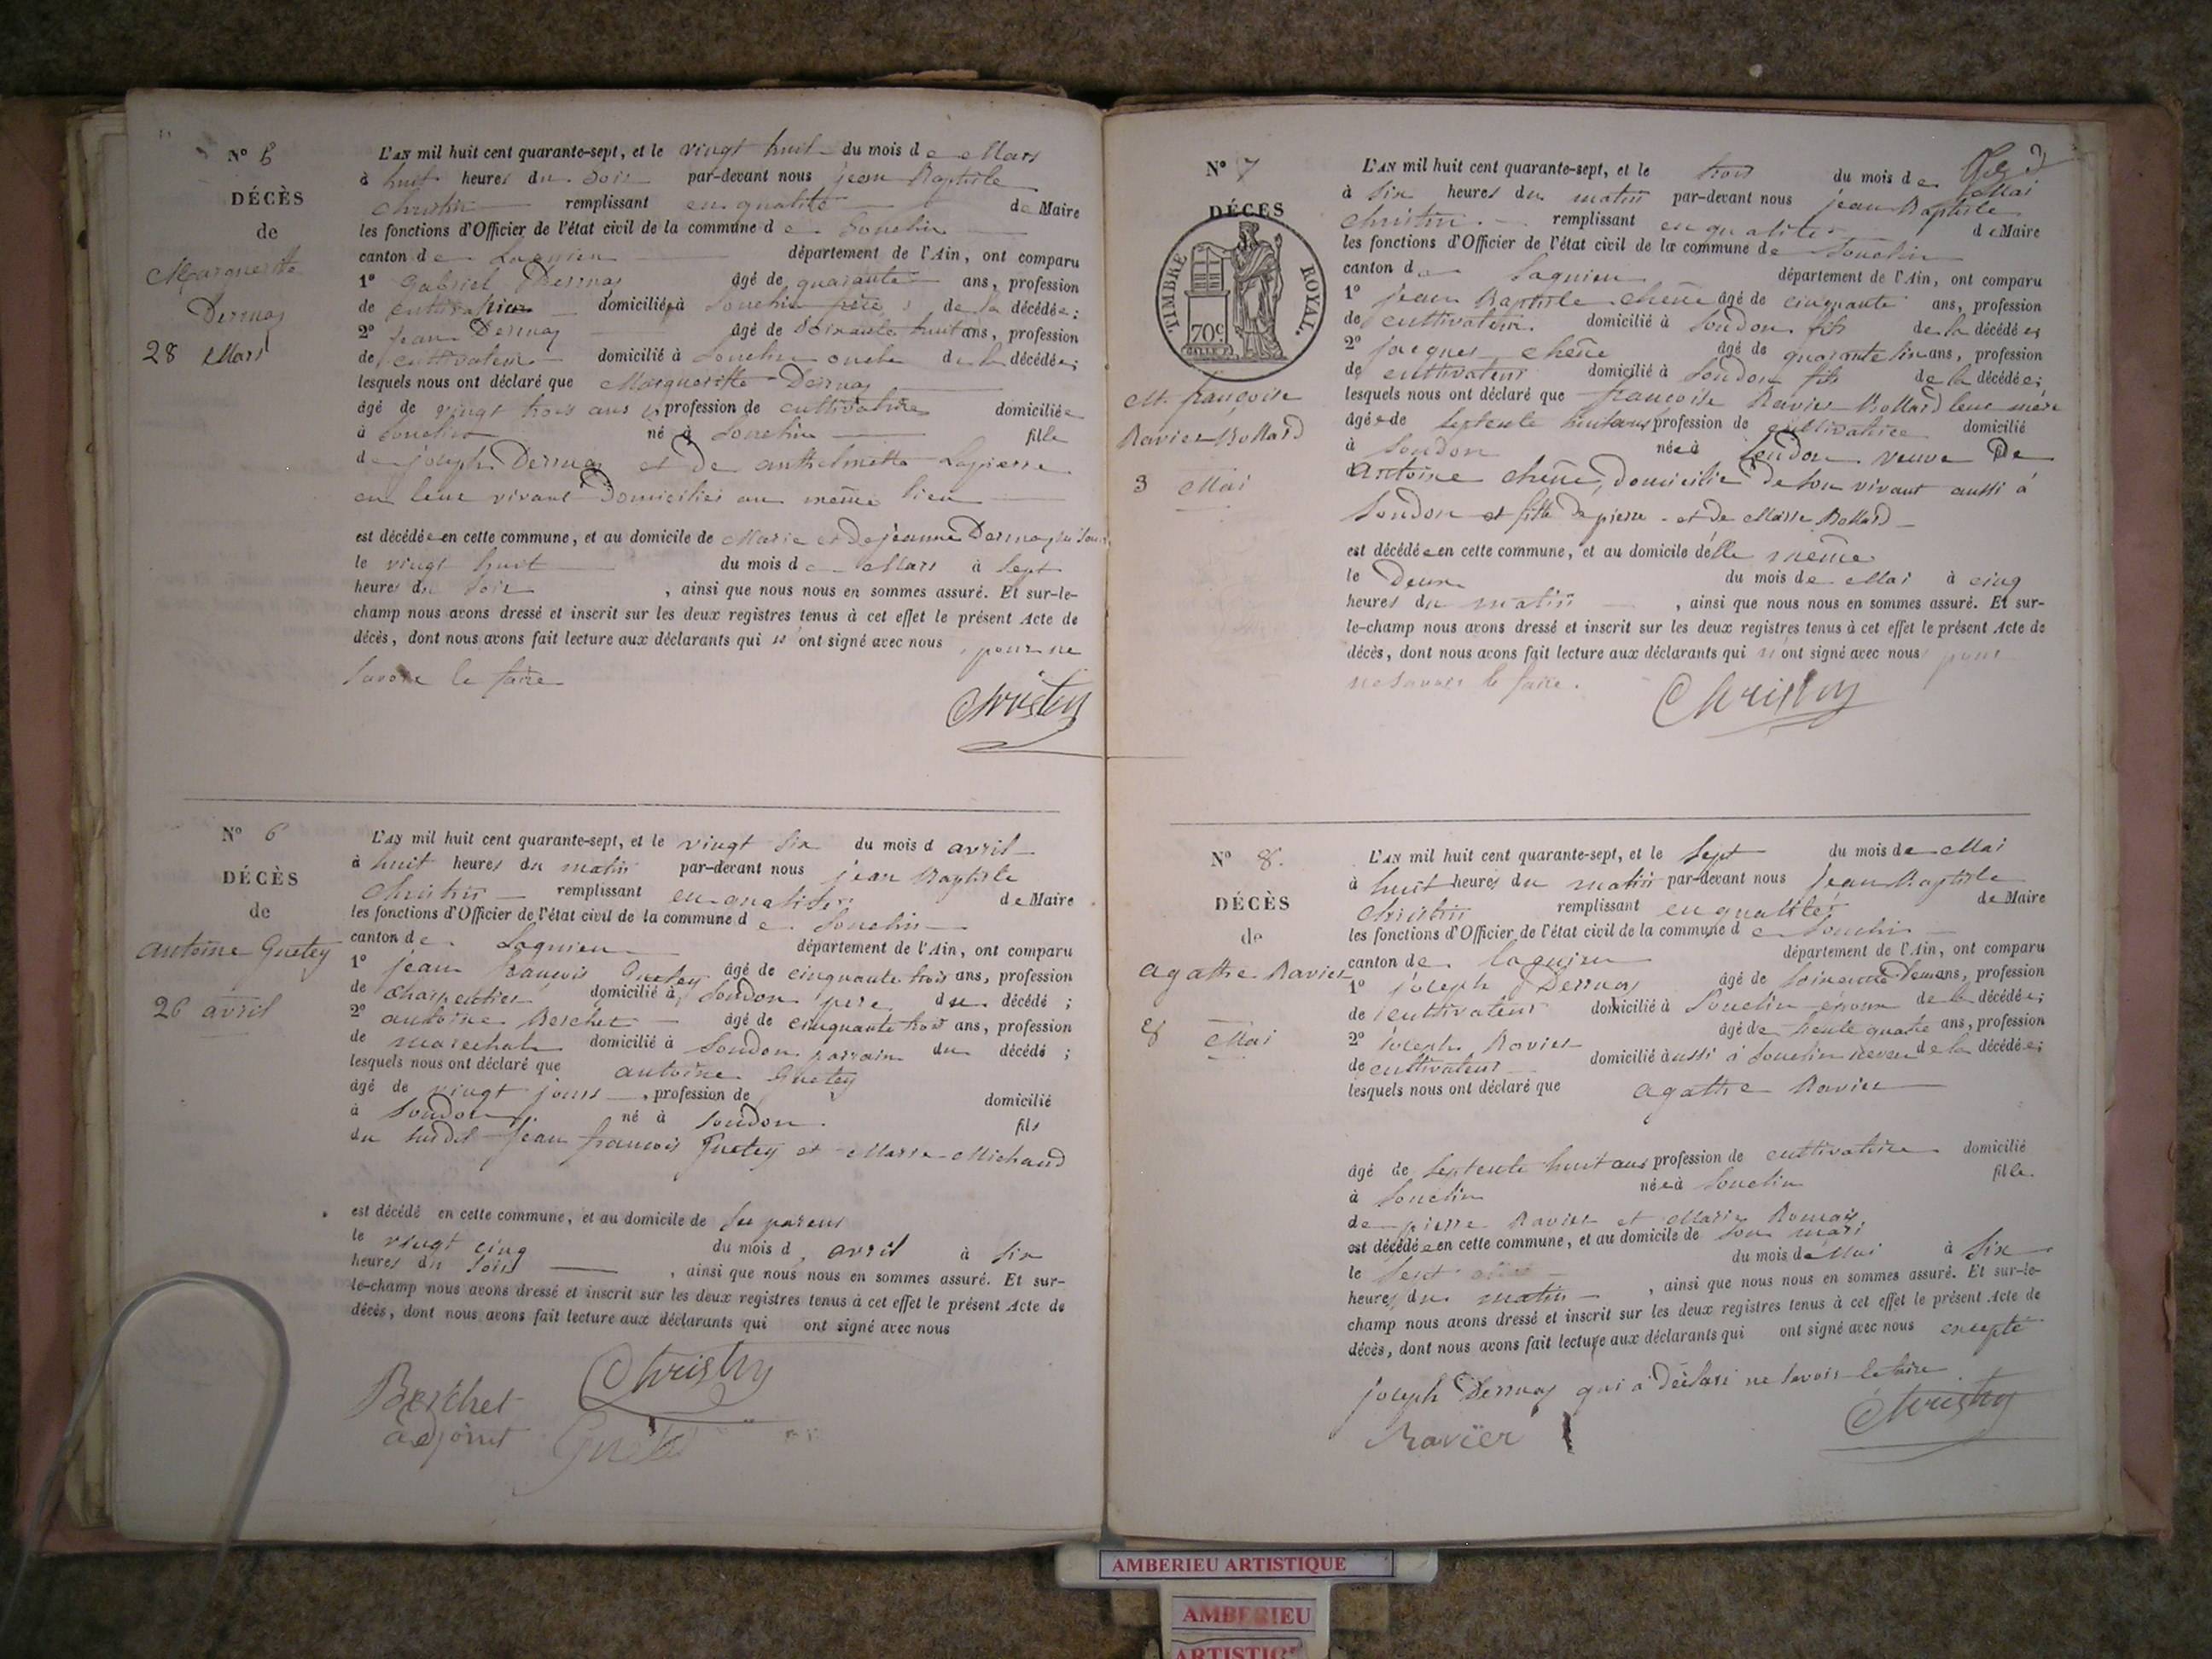 N° 5
DÉCÈS
de
Marguerite
Dernay
28 Mars
L'AN mil huit cent quarante-sept, et le vingt huit du mois de Mars
à huit heures du soir par-devant nous jean Baptiste
Christin remplissant en qualité de Maire
les fonctions d'Officier de l'état civil de la commune de Souclin
canton de Lagnieu département de l'Ain, ont comparu
1° Gabriel Dernay âgé de quarante ans, profession
de cultivateur domicilié à Souclin frère de la décédée;
2° jean Dernay âgé de soixante huit ans, profession
de cultivateur domicilié à Souclin oncle de la décédée;
lesquels nous ont déclaré que Margueritte Dernay
âgé de vingt trois ans profession de cultivatrice domiciliée
à Souclin né à Souclin fille
de joseph Dernay et de anthelmette Lapierre
en leur vivant Domiciliés au même lieu
est décédée en cette commune, et au domicile de Marie et De jeanne Dernay
le vingt huit du mois de Mars à Sept
heures du Soir , ainsi que nous nous en sommes assuré. Et sur-le-
champ nous avons dressé et inscrit sur les deux registres tenus à cet effet le présent Acte de
décès, dont nous avons fait lecture aux déclarants qui n'ont signé avec nous , pour ne
Savoir le faire
Christin
N° 6
DÉCÈS
de
antoine Guetey
26 avril
L'AN mil huit cent quarante-sept, et le vingt Six du mois d avril
à huit heures du matin par-devant nous jean Baptiste
Christin remplissant en qualité de Maire
les fonctions d'Officier de l'état civil de la commune de Souclin
canton de Lagnieu département de l'Ain, ont comparu
1° jean françois Guetey âgé de cinquante trois ans, profession
de charpentier domicilié à Soudon pere du décédé ;
2° antoine Berchet âgé de cinquante trois ans, profession
de marechal domicilié à Soudon parrain du décédé ;
lesquels nous ont déclaré que antoine Guetey
âgé de vingt jours , profession de domicilié
à Soudon né à Soudon fils
du Susdit jean françois Guetey et Marie Michaud
est décédé en cette commune, et au domicile de Ses parens
le vingt cinq du mois d avril à Six
heures du Soir , ainsi que nous nous en sommes assuré. Et sur-
le-champ nous avons dressé et inscrit sur les deux registres tenus à cet effet le présent Acte de
décès, dont nous avons fait lecture aux déclarants qui ont signé avec nous
Berchet
adjoint
Christin
N° 7
DÉCES
TIMBRE ROYAL.
70c
M. françoise
Ravier Bollard
3 Mai
L'AN mil huit cent quarante-sept, et le trois du mois de Mai
à Six heures du matin par-devant nous jean Baptiste
Christin remplissant en qualité de Maire
les fonctions d'Officier de l'état civil de la commune de Souclin
canton de Lagnieu département de l'Ain, ont comparu
1° jean Baptiste chêne âgé de cinquante ans, profession
de cultivateur domicilié à Soudon fils de la décédée
2° jacques chêne âgé de quarante Six ans, profession
de cultivateur domicilié à Soudon fils de la décédée;
lesquels nous ont déclaré que françoise Ravier Bollard leur mère
âgée de Septente huit ans profession de cultivatrice domicilié
à Soudon née à Soudon veuve De
Antoine chêne, domicilié de Son vivant aussi à
Soudon et fille de pierre et de Marie Bollard
est décédée en cette commune, et au domicile d'elle même
le Deux du mois de Mai à cinq
heures du matin , ainsi que nous nous en sommes assuré. Et sur-
le-champ nous avons dressé et inscrit sur les deux registres tenus à cet effet le présent Acte de
décès, dont nous avons fait lecture aux déclarants qui n'ont signé avec nous pour
ne Savoir le faire.
Christin
N° 8.
DÉCÈS
de
agathe Ravier
8 Mai
L'AN mil huit cent quarante-sept, et le Sept du mois de Mai
à huit heures du matin par-devant nous jean Baptiste
Christin remplissant en qualité de Maire
les fonctions d'Officier de l'état civil de la commune de Souclin
canton de Lagnieu département de l'Ain, ont comparu
1° joseph Dernay âgé de Soixante Deux ans, profession
de cultivateur domicilié à Souclin époux de la décédée;
2° joseph Ravier âgé de trente quatre ans, profession
de cultivateur domicilié aussi à Souclin neveu de la décédée;
lesquels nous ont déclaré que agathe Ravier
âgé de Septente huit ans profession de cultivatrice domicilié
à Souclin née à Souclin fille
de pierre Ravier et Marie
est décédée en cette commune, et au domicile de Son mari
le Sept du mois de Mai à Six
heures du matin , ainsi que nous nous en sommes assuré. Et sur-le-
champ nous avons dressé et inscrit sur les deux registres tenus à cet effet le présent Acte de
décès, dont nous avons fait lecture aux déclarants qui ont signé avec nous excepté
joseph Dernay qui a Déclaré ne Savoir le faire
Ravier
Christin
AMBERIEU ARTISTIQUE
AMBERIEU
ARTISTIQUE